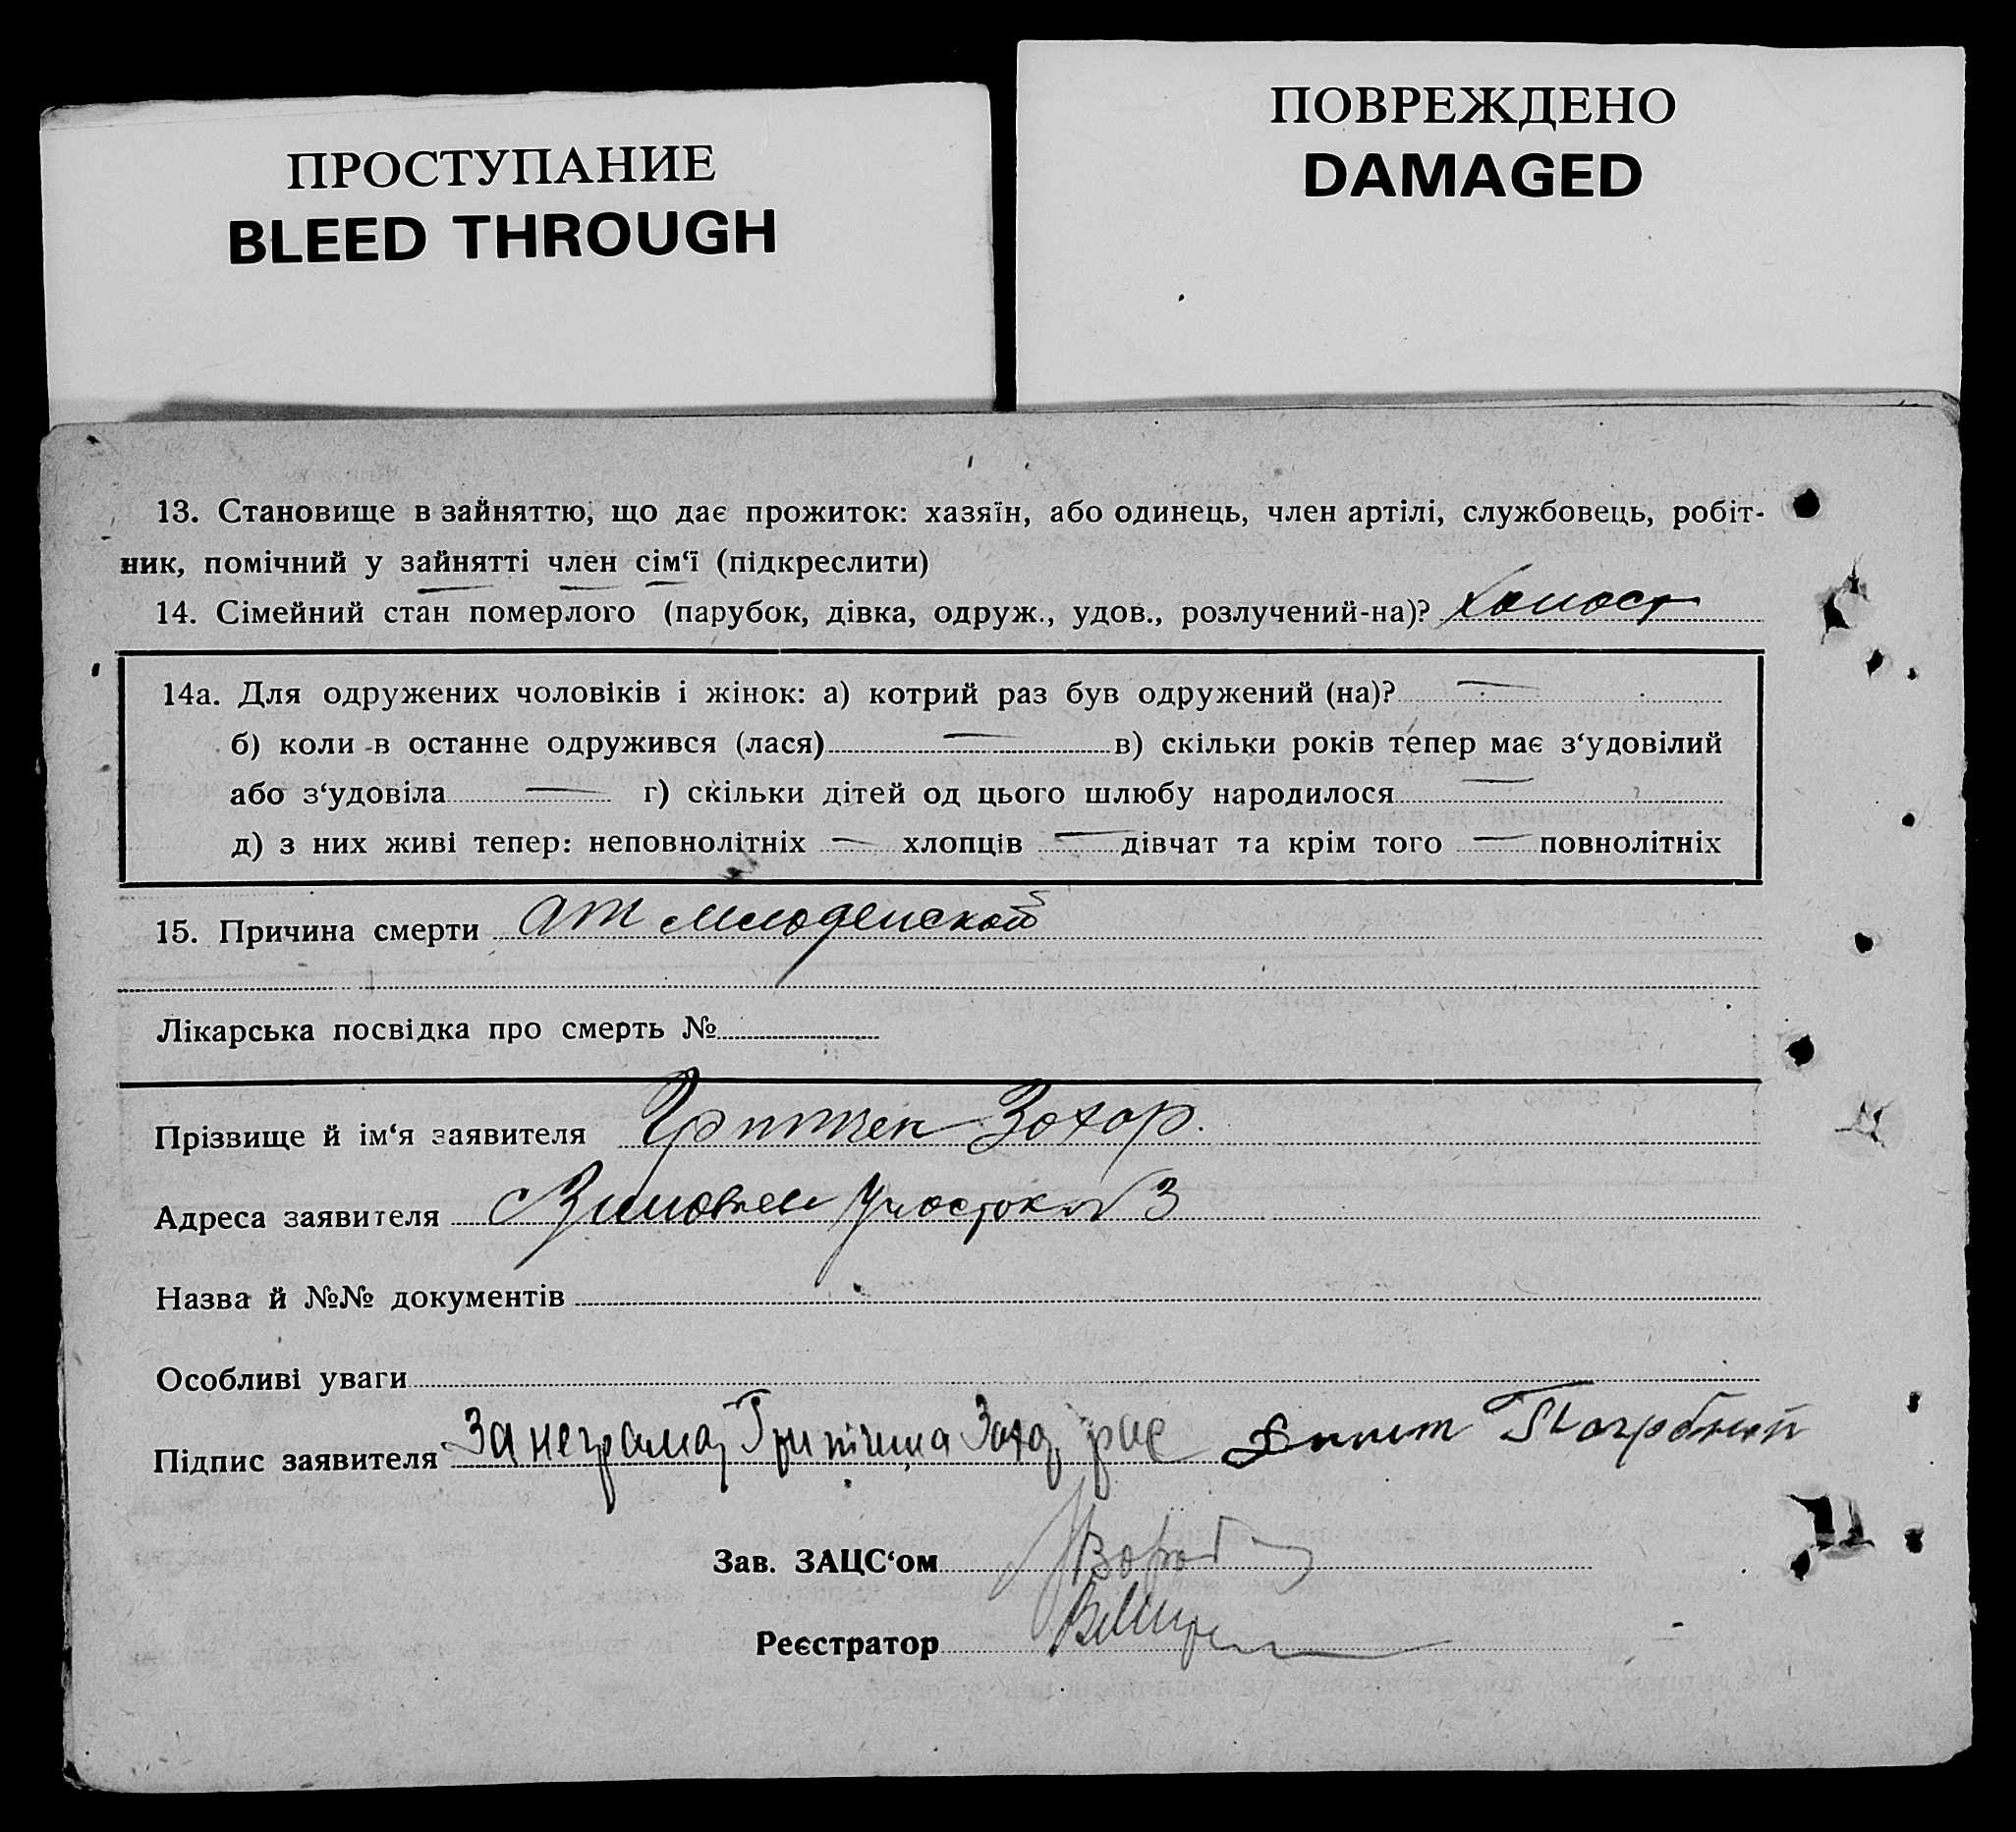 ПРОСТУПАНИЕ
BLEED THROUGH
ПОВРЕЖДЕНО
DAMAGED
13. Становище в зайняттю, що дає прожиток: хазяїн, або одинець, член артілі, службовець, робіт-
ник, помічний у зайнятті член сім‘ї (підкреслити)
14. Сімейний стан померлого (парубок, дівка, одруж., удов., розлучений-на)? холост
14а. Для одружених чоловіків і жінок: а) котрий раз був одружений (на)? —
б) коли в останне одружився (лася) — в) скільки років тепер має з‘удовілий
або з‘удовіла — г) скільки дітей од цього шлюбу народилося —
д) з них живі тепер: неповнолітніх — хлопців — дівчат та крім того — повнолітніх
15. Причина смерти от млоденской
Лікарська посвідка про смерть №
Прізвище й ім‘я заявителя Зохор.
Адреса заявителя Участок № 3
Назва й №№ документів
Особливі уваги
Підпис заявителя За неграмот Погрібний
Зав. ЗАЦС‘ом
Реєстратор